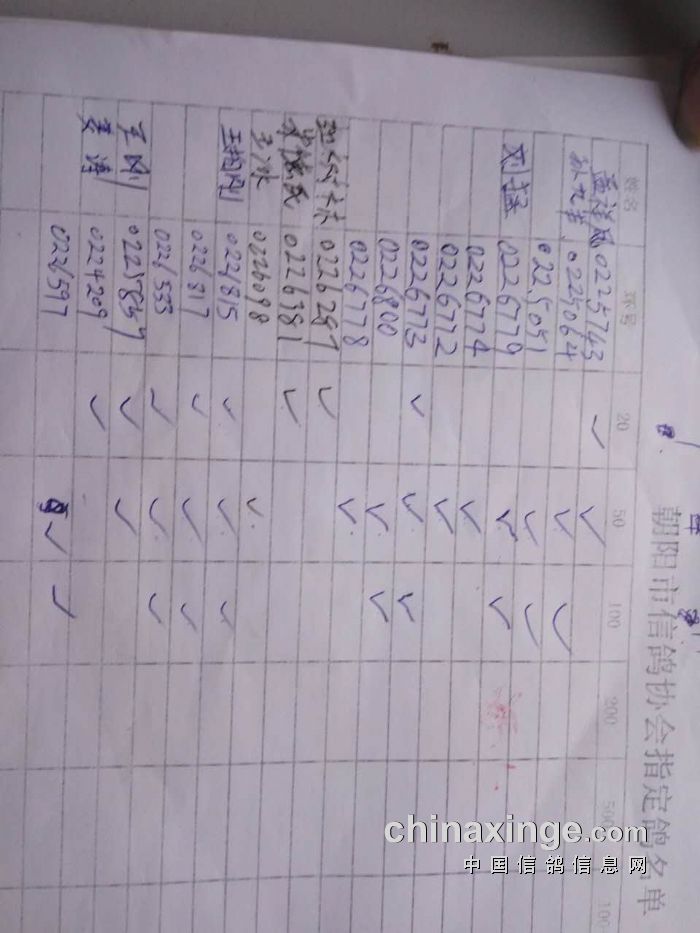 朝阳市信鸽协会指定鸽名单
姓名 环号 20 50 100 200 500 100
0225743 ✓ ✓
0225064 ✓ ✓
0225051 ✓ ✓
刘猛 0226779 ✓ ✓
0226774 ✓
0226772 ✓
0226773 ✓ ✓ ✓
0226800 ✓ ✓
0226778 ✓
0226287 ✓
0226381 ✓
王冰 0226098 ✓
王柏刚 0226815 ✓ ✓ ✓
0226817 ✓ ✓ ✓
0226553 ✓ ✓ ✓
王刚 0225857 ✓ ✓
姜涛 0224209 ✓
0226597 ✓ ✓
chinaxinge.com
中国信鸽信息网